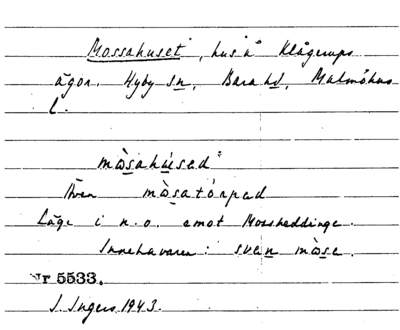 Mossahuset, hus å Klågerups
ägor. Hyby sn, Bara hd, Malmöhus
L.
mòsahúsəd
Även mòsatórpəd
Läge i n.o. emot Mossheddinge.
Innehavaren: svɛn mòsə.
Nr 5533.
I. Ingers 1943.